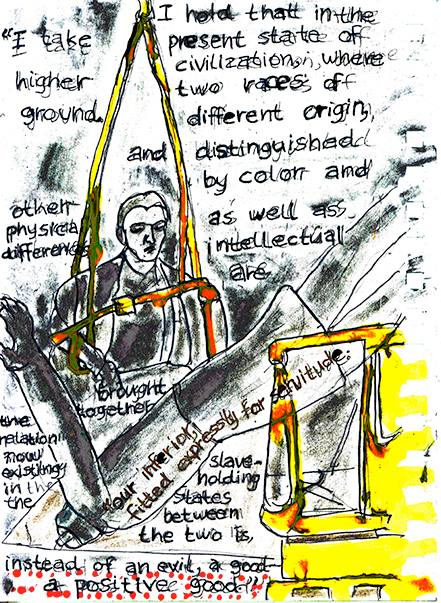 "I take
higher
ground.
I hold that in the
present state of
civilization, where
two races of
different origin,
and distinguished
by color and
other
physical
differences
as well as
intellectual
are
brought
together
the
relation
now
existing
in the
the
slave-
holding
states
between
the two is,
instead of an evil, a good–
a positive good!"
"our inferior,
fitted expressly for servitude.